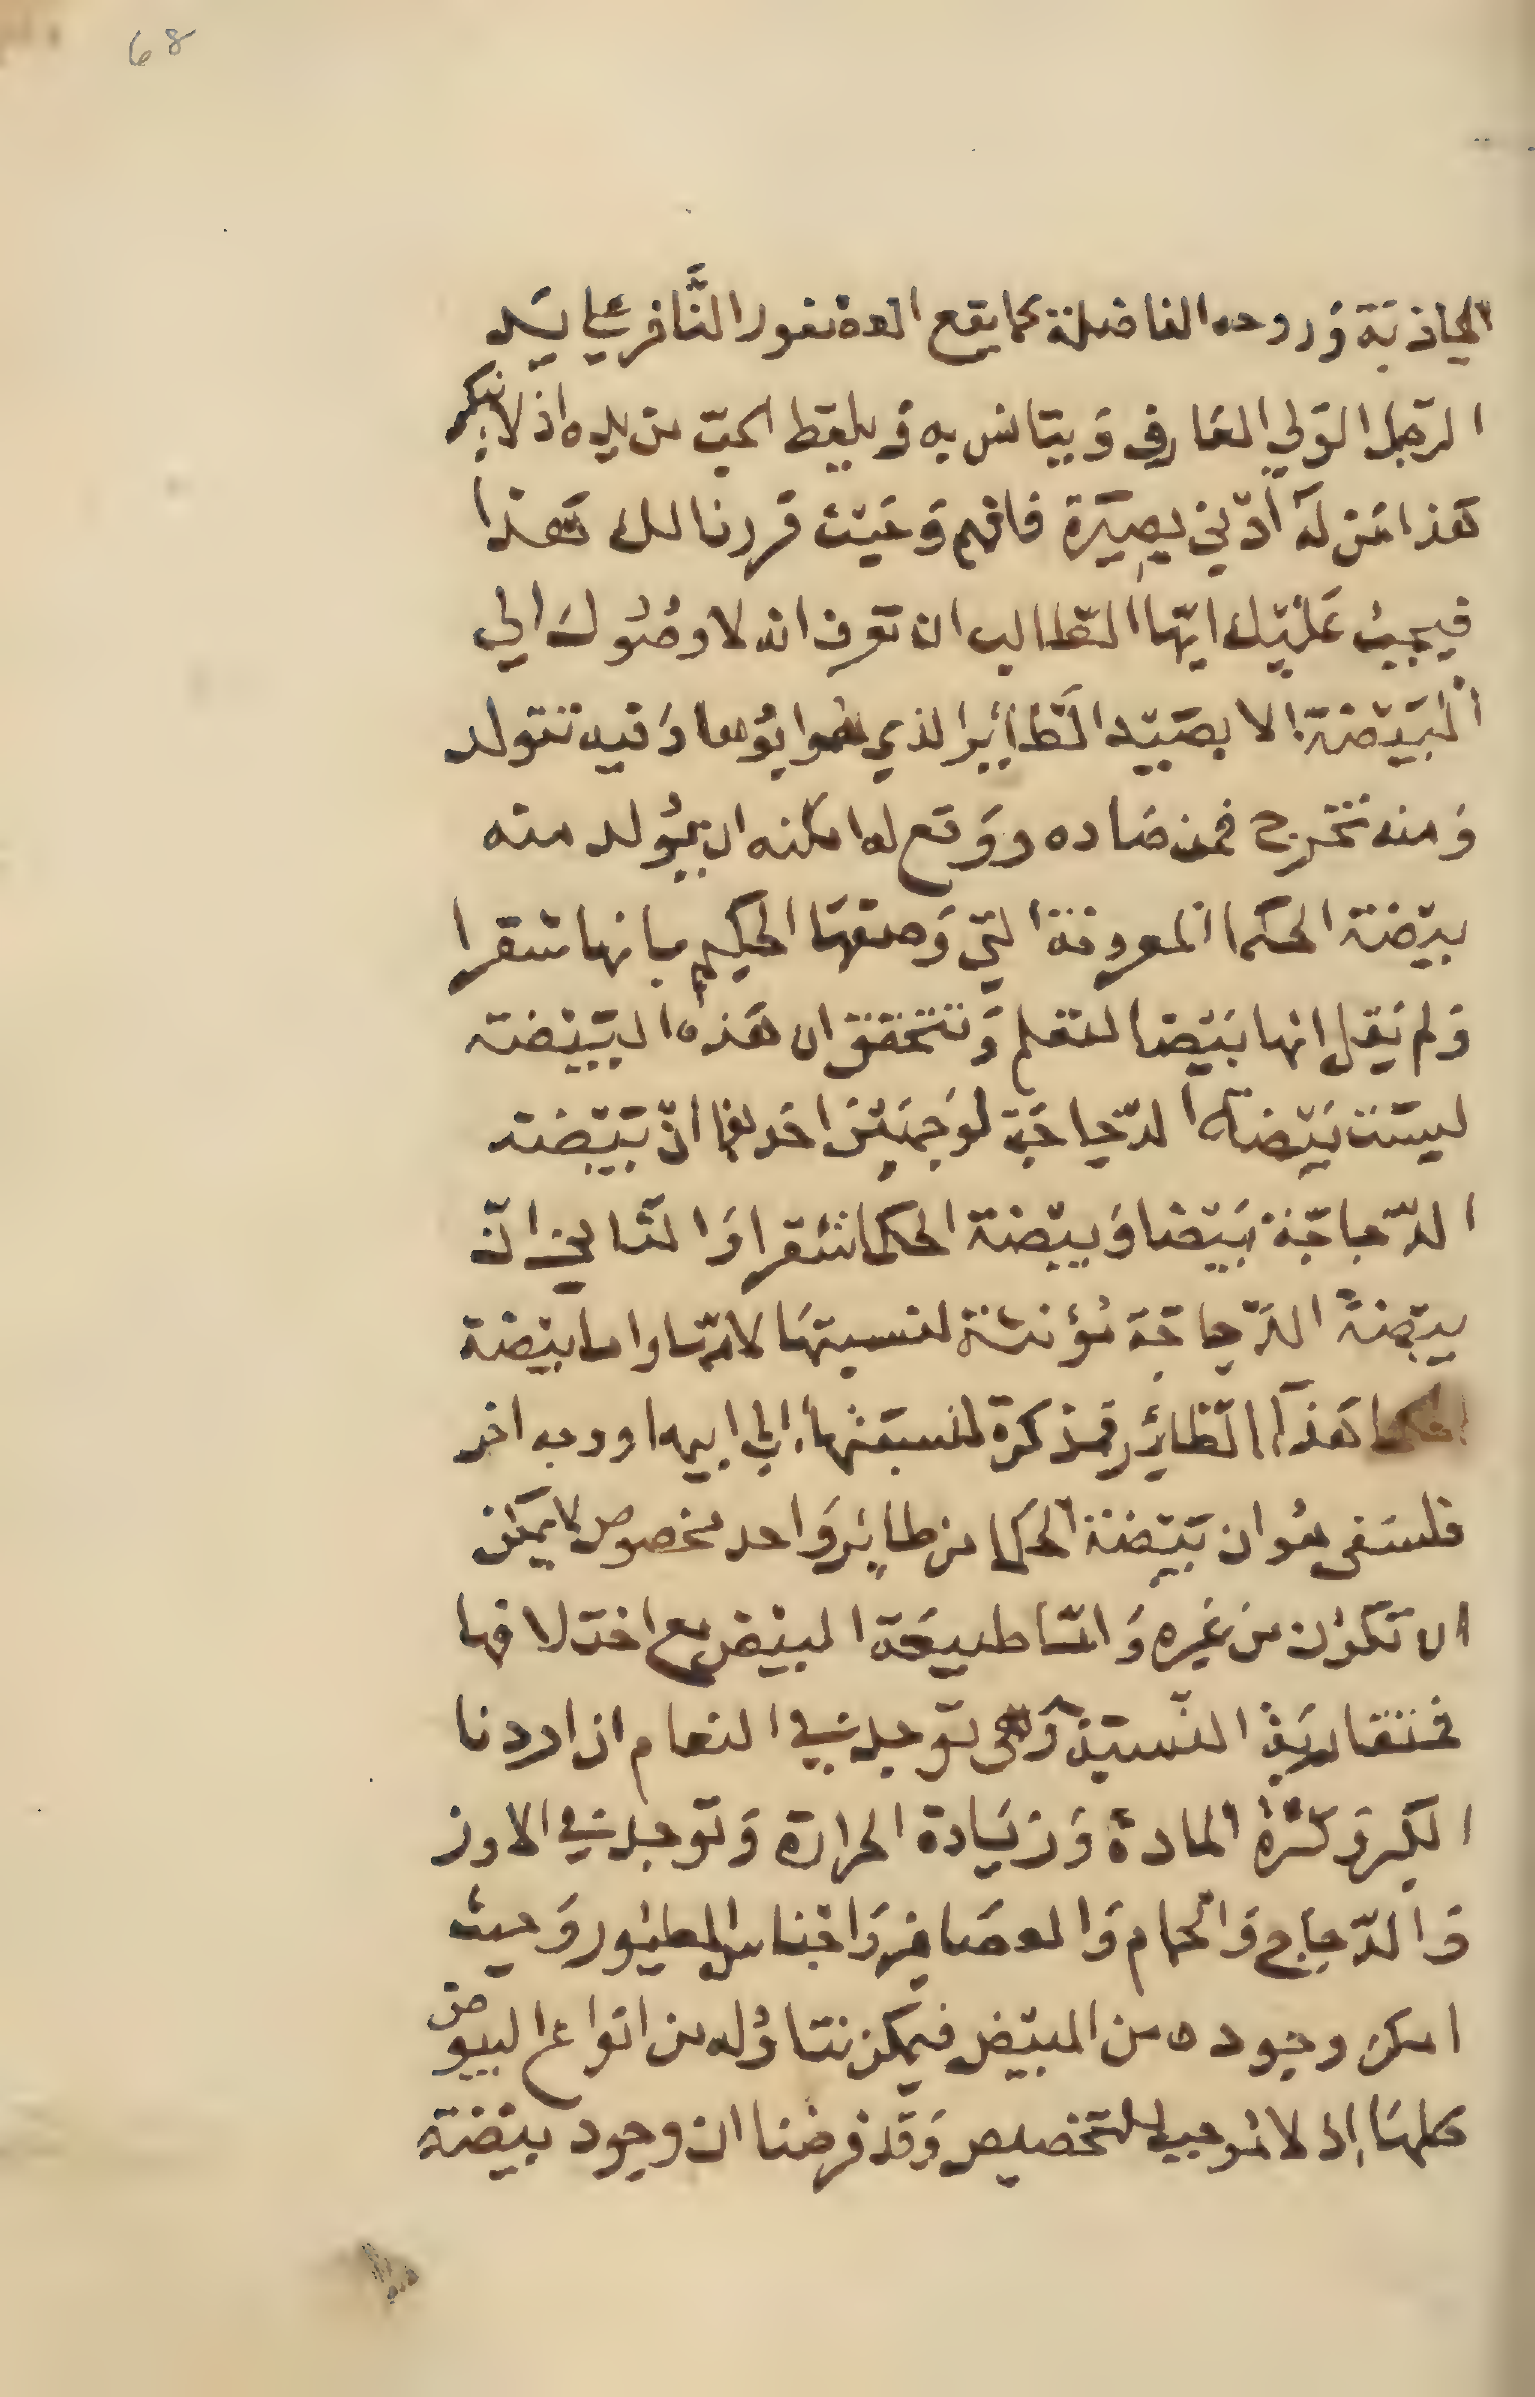 68
الجاذبة وَروحه الفاضلة كما يقع العصفور النَّافر علي يَد
الرّجل الوَلي العَارف وَيتانس به وَيلقط الحبّ من يده اذ لا ينكر
هَذا مَن لَه ادّني بصِيرَة فافهم وَحَيث قررنا لك هَذا
فيجبُ عَليْك ايّها الطّالب ان تعرف انه لا وصُوُل الي
البَيْضَة الا بصَيْد الطَّايِر الذي هُوا بوُها وَفيه تتولد
وَمنه تخرج فمن صَاده ووَقع له امكنه ان يُولد منه
بيْضَة الحكما المعروفة التي وَصفهَا الحكيم بانها شقرا
وَلم يَقل انها بيَضا لتعلم وَتتحقق ان هَذه البيَضة
ليسَت بيَضة الدّجاجَة لوَجهَين احَدهما انّ بيَضة
الدّجاجَة بيَضا وَبيضة الحكما شقرا وَالثَاني انّ
بيّضة الدّجاجَة مُؤنثة لنسبتهَا لامّها واما بيضة
الحكما هَذا الطّايِر فمذكرة لنسبَتها الي ابيها ووجه اخر
فلسَفى هُوان بيَضة الحكما من طايِر وَاحد مخصوص لا يمكن
ان تكوُن من غيَره وَامّا طبيعَة البيْض مع اختلافها
فمتقاربَة النّسبَة وَهي توَجد في النعام اذا اردنا
الكبر وَكثرة المادة وَزيَادة الحرارة وَتوَجد في الاوز
وَالدّجاج وَالحمام وَالعصَافير وَاجناس الطيُور وَحيث
امكن وجوده من البيَض فيمكن تناوُله من انواع البيوض
كلهَا اذ لا مُوجب للتخصيص وَقد فرضنا ان وجود بيضَة